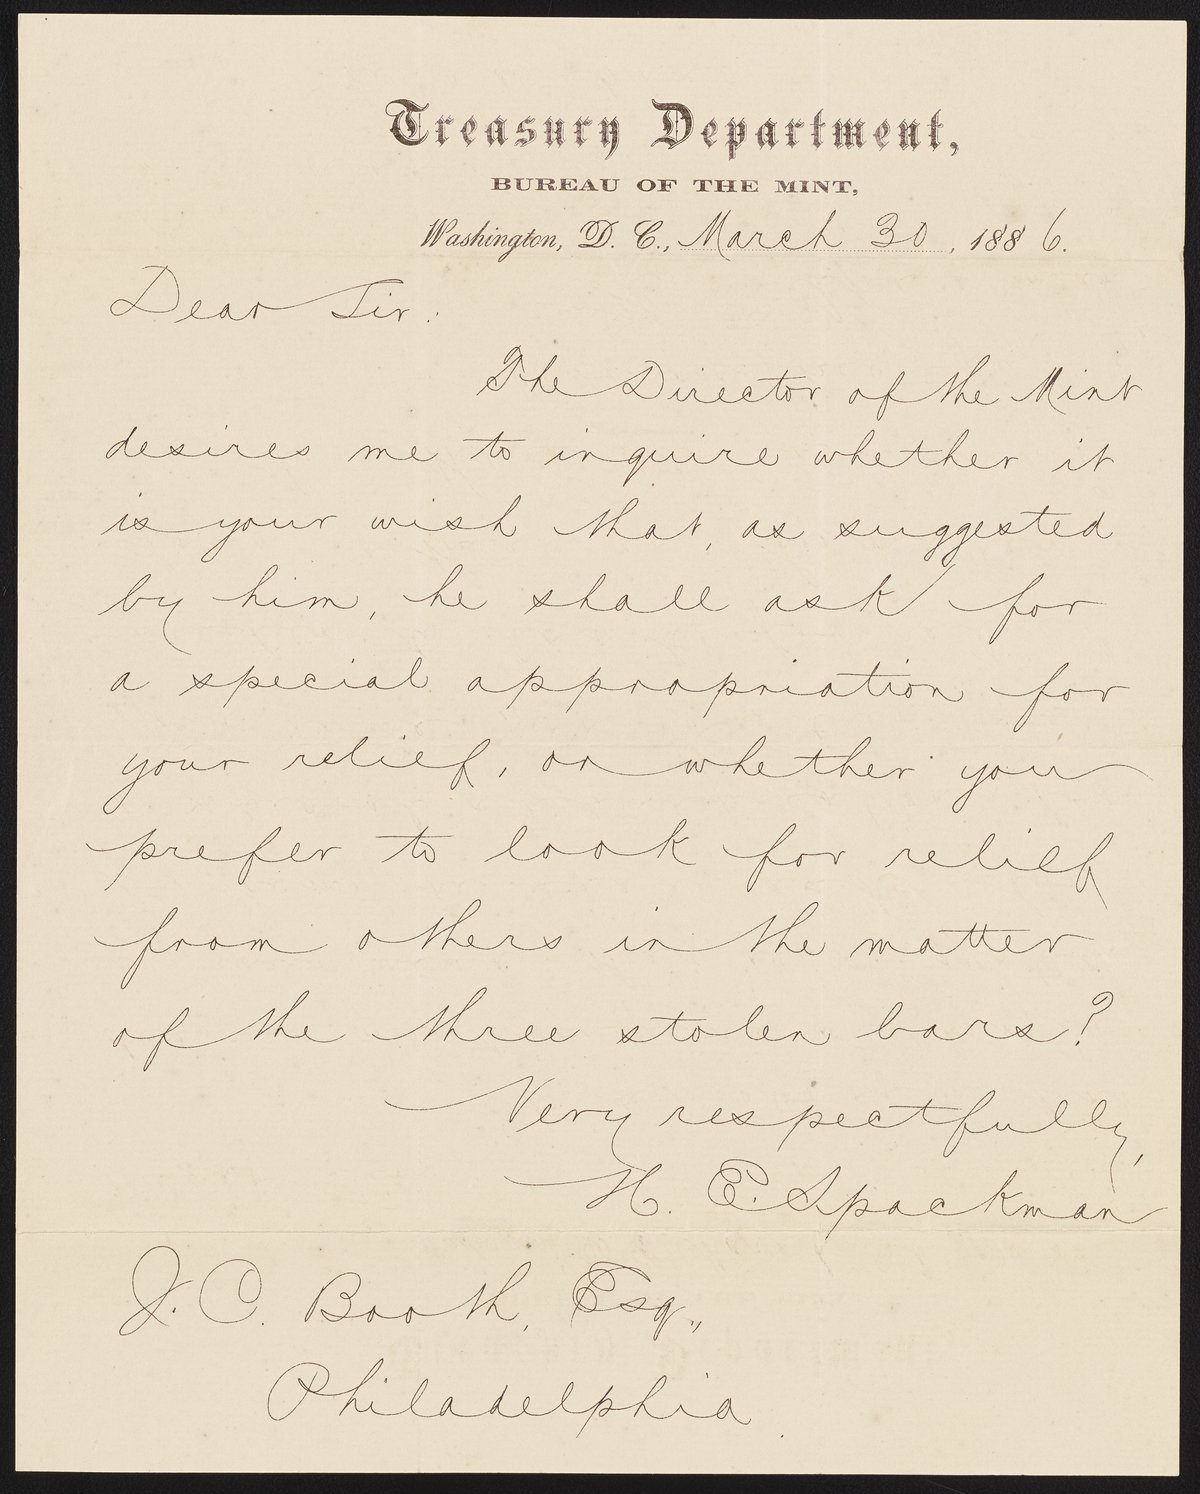 Treasury Department,
BUREAU OF THE MINT,
Washington, D. C., March 30, 1886.
Dear Sir:
The Director of the Mint
desires me to inquire whether it
is your wish that, as suggested
by him, he shall ask for
a special appropriation for
your relief, or whether you
prefer to look for relief
from others in the matter
of the three stolen bars?
Very respectfully,
H. E. Spackman
J. C. Booth, Esq.,
Philadelphia.